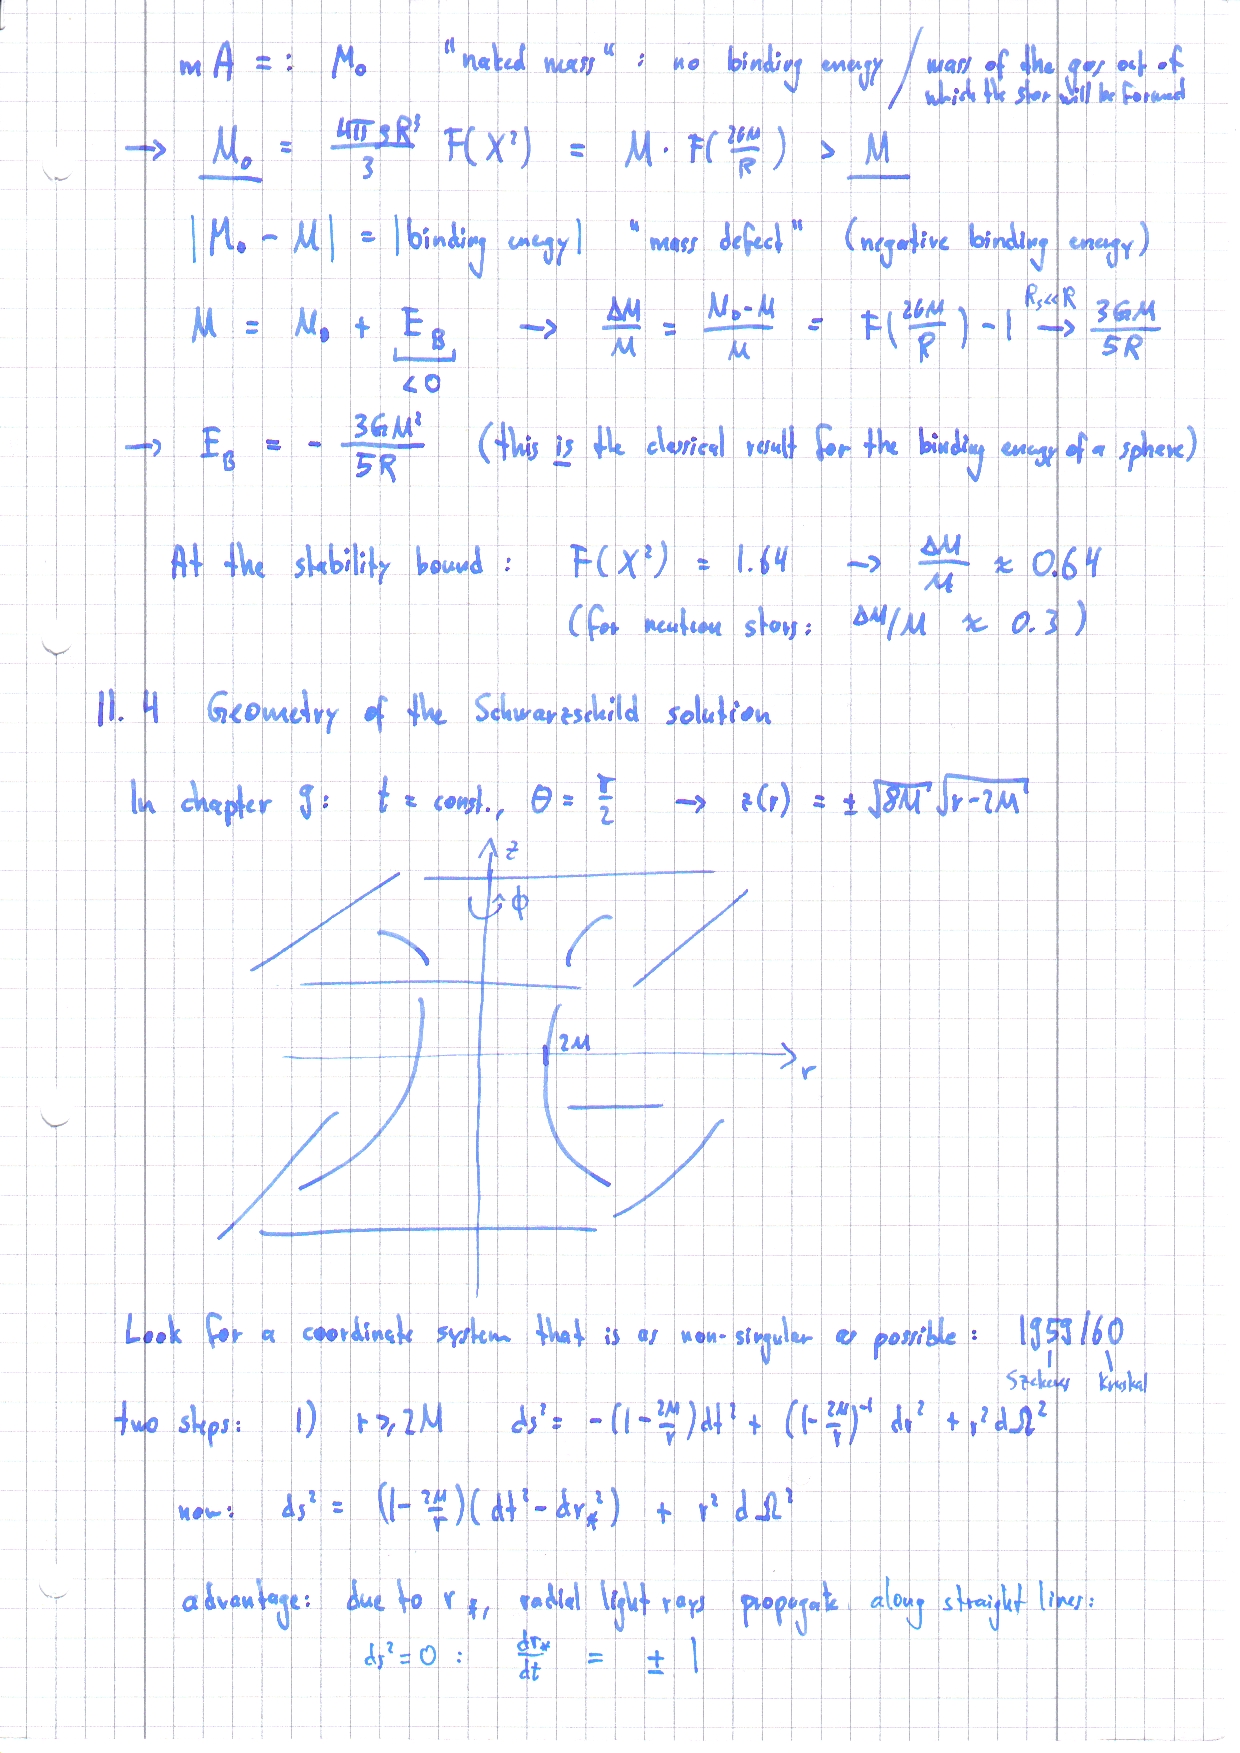 m A =: M₀ "naked mass": no binding energy / mass of the gas out of
which the star will be formed
→ M₀ = 4πρR³/3 F(X²) = M · F(2GM/R) > M
|M₀ - M| = |binding energy| "mass defect" (negative binding energy)
M = M₀ + E_B → ΔM/M = (M₀-M)/M = F(2GM/R) - 1 →(R_S≪R) 3GM/5R
<0
→ E_B = - 3GM²/5R (this is the classical result for the binding energy of a sphere)
At the stability bound: F(X²) = 1.64 → ΔM/M ≈ 0.64
(for neutron stars: ΔM/M ≈ 0.3)
11.4 Geometry of the Schwarzschild solution
In chapter 9: t = const., θ = π/2 → z(r) = ± √8M √r-2M
z
ϕ
2M
r
Look for a coordinate system that is as non-singular as possible: 1959/60
Szekeres Kruskal
two steps: 1) r ≥ 2M ds² = -(1-2M/r)dt² + (1-2M/r)⁻¹ dr² + r²dΩ²
now: ds² = (1-2M/r)(dt² - dr*²) + r² dΩ²
advantage: due to r*, radial light rays propagate along straight lines:
ds²=0: dr*/dt = ± 1